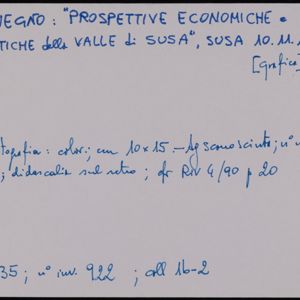 NEGNO: "PROSPETTIVE ECONOMICHE e
TICHE della VALLE di SUSA", SUSA 10.11.1
[Grafica]
tografia: color.; cm 10x15.- Ag sconosciuto; n°
; didascalia sul retro; cfr Riv 4/90 p 20
35; n° inv. 922 ; coll 1b-2